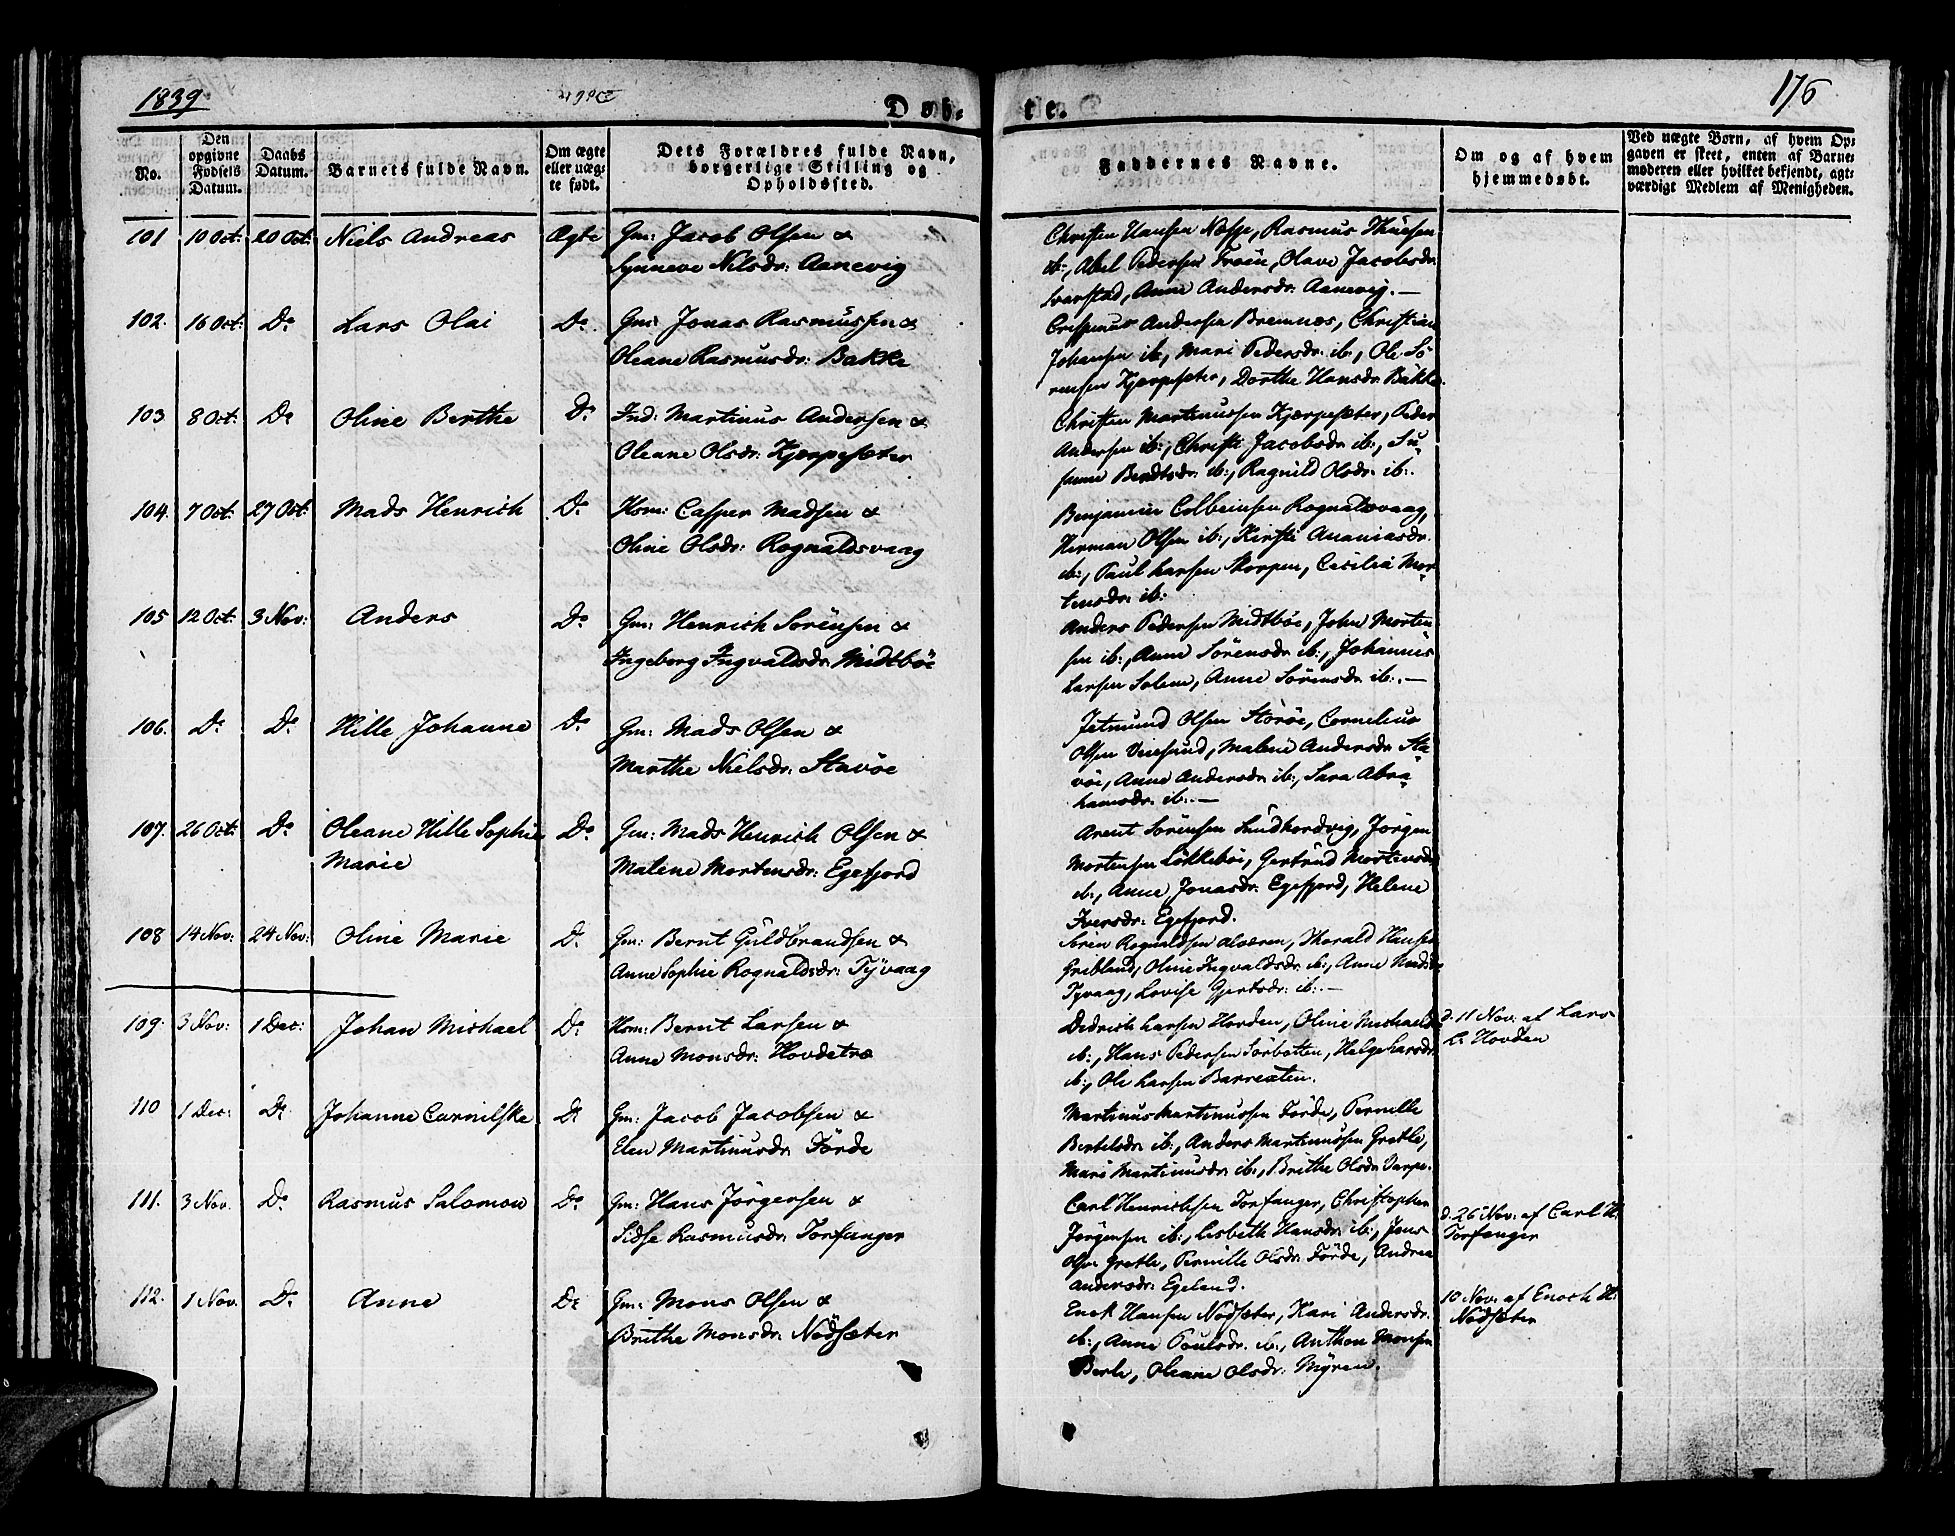 1839
176
Døb-
te.
No.
Den opgivne Fødsels Datum.
Daabs Datum.
Barnets fulde Navn.
Om ægte eller uægte født.
Dets Forældres fulde Navn, borgerlige Stilling og Opholdssted.
Faddernes Navne.
Om og af hvem hjemmedøbt.
Ved uægte Børn, af hvem Opgaven er skeet, enten af Barnemoderen eller hvilket bekjendt, agtværdigt Medlem af Menigheden.
101 10 Oct: 20 Oct: Niels Andreas Ægte Gm: Jacob Olsen &
Synneve Nilsdr: Aanevig
Christen Hansen Næsse, Rasmus
ib:, Abel Pedersen Troen, Olave Jacobsdr:
Svarstad, Anne Andersdr: Aanevig. —
102. 16 Oct: Do Lars Olai Do. Gm: Jonas Rasmussen &
Oleane Rasmusdr: Bakke
Crispinus Andersen Bremnes, Christian
Johansen ib:, Mari Pedersdr: ib:, Ole Sö-
rensen Kjerpesæter, Dorthe Hansdr: Bakke.
103 8 Oct: Do Oline Berthe Do Ind: Martinus Andersen &
Oleane Olsdr: Kjerpesæter
Christen Martinussen Kjærpesæter, Peder
Andersen ib:, Christi Jacobsdr: ib:, Su-
sanne Bendtsdr: ib:, Ragnild Olsdr: ib:.
104. 7 Oct: 27 Oct: Mads Henrich Do Hsm: Casper Madsen &
Oline Olsdr: Rognaldsvaag
Benjamin Colbeinsen Rognaldsvaag,
Herman Olsen ib:, Kirsti Ananiasdr:
ib:, Paul Larsen Skorpen, Cecilia Mor-
tensdr: ib:
105 12 Oct: 3 Nov: Anders Do Gm: Henrich Sörensen &
Ingeborg Ingvaldsdr: Midtböe
Anders Pedersen Midtböe, John Morten-
sen ib:, Anne Sörensdr: ib:, Johannes
Larsen Solem, Anne Sörensdr: ib:. —
106. Do Do Hille Johanne Do Gm: Mads Olsen &
Marthe Nielsdr: Stavöe
Jetmund Olsen Störöe, Cornelius
Olsen Veiesund, Malene Andersdr: Sta-
vöe, Anne Andersdr: ib:, Sara Abra-
hamsdr: ib:. —
107. 26 Oct: Do Oleane Hille Sophie Do Gm: Mads Henrich Olsen &
Marie Malene Mortensdr: Egefjord
Arent Sörensen Indhordvig, Jörgen
Mortensen Lökkeböe, Gertrud Mortensdr:
ib:, Anne Jonasdr: Egefjord, Helene
Iversdr: Egefjord.
108 14 Nov: 24 Nov: Oline Marie Do Gm: Bernt Guldbrandsen &
Anne Sophie Rognaldsdr: Tyvaag
Sören Rognaldsen Alværen, Thorald Hansen
Gribland, Oline Ingvaldsdr: ib:, Anne
Tyvaag, Lovise Gjertsdr: ib:. —
109. 3 Nov: 1 Dec: Johan Michael Do Hsm: Bernt Larsen &
Anne Monsdr: Hovdetræ
Dedrich Larsen Hovden, Oline Michaelsdr:
ib:, Hans Pedersen Sörbotten, Helge Larsdr:
ib:, Ole Larsen Barresten.
d. 11 Nov: af Lars
L: Hovden
110 1 Dec: Do Johanne Carnilske Do Gm: Jacob Jacobsen &
Elen Martinusdr: Förde
Martinus Martinussen Förde, Pernille
Bertelsdr: ib:, Anders Martinussen Grotle,
Mari Martinusdr: ib:, Brithe Olsdr: Varpe.
111. 3 Nov. Do Rasmus Salomon Do Gm: Hans Jörgensen &
Sidse Rasmusdr: Torfanger
Carl Henrichsen Torfanger, Christopher
Jörgensen ib:, Lisbeth Hansdr: ib:, Jens
Olsen Grotle, Pernille Olsdr: Förde, Andrea
Andersdr: Egeland.
d. 26 Nov: af Carl H:
Torfanger
112. 1 Nov. Do Anne Do Gm: Mons Olsen &
Brithe Monsdr: Nödsæter
Enok Hansen Nödsæter, Kari Andersdr:
ib:, Anne Poulsdr: ib:, Anthon Monsen
Berle, Oleane Olsdr: Myren.
10 Nov: af Enoch H:
Nödsæter